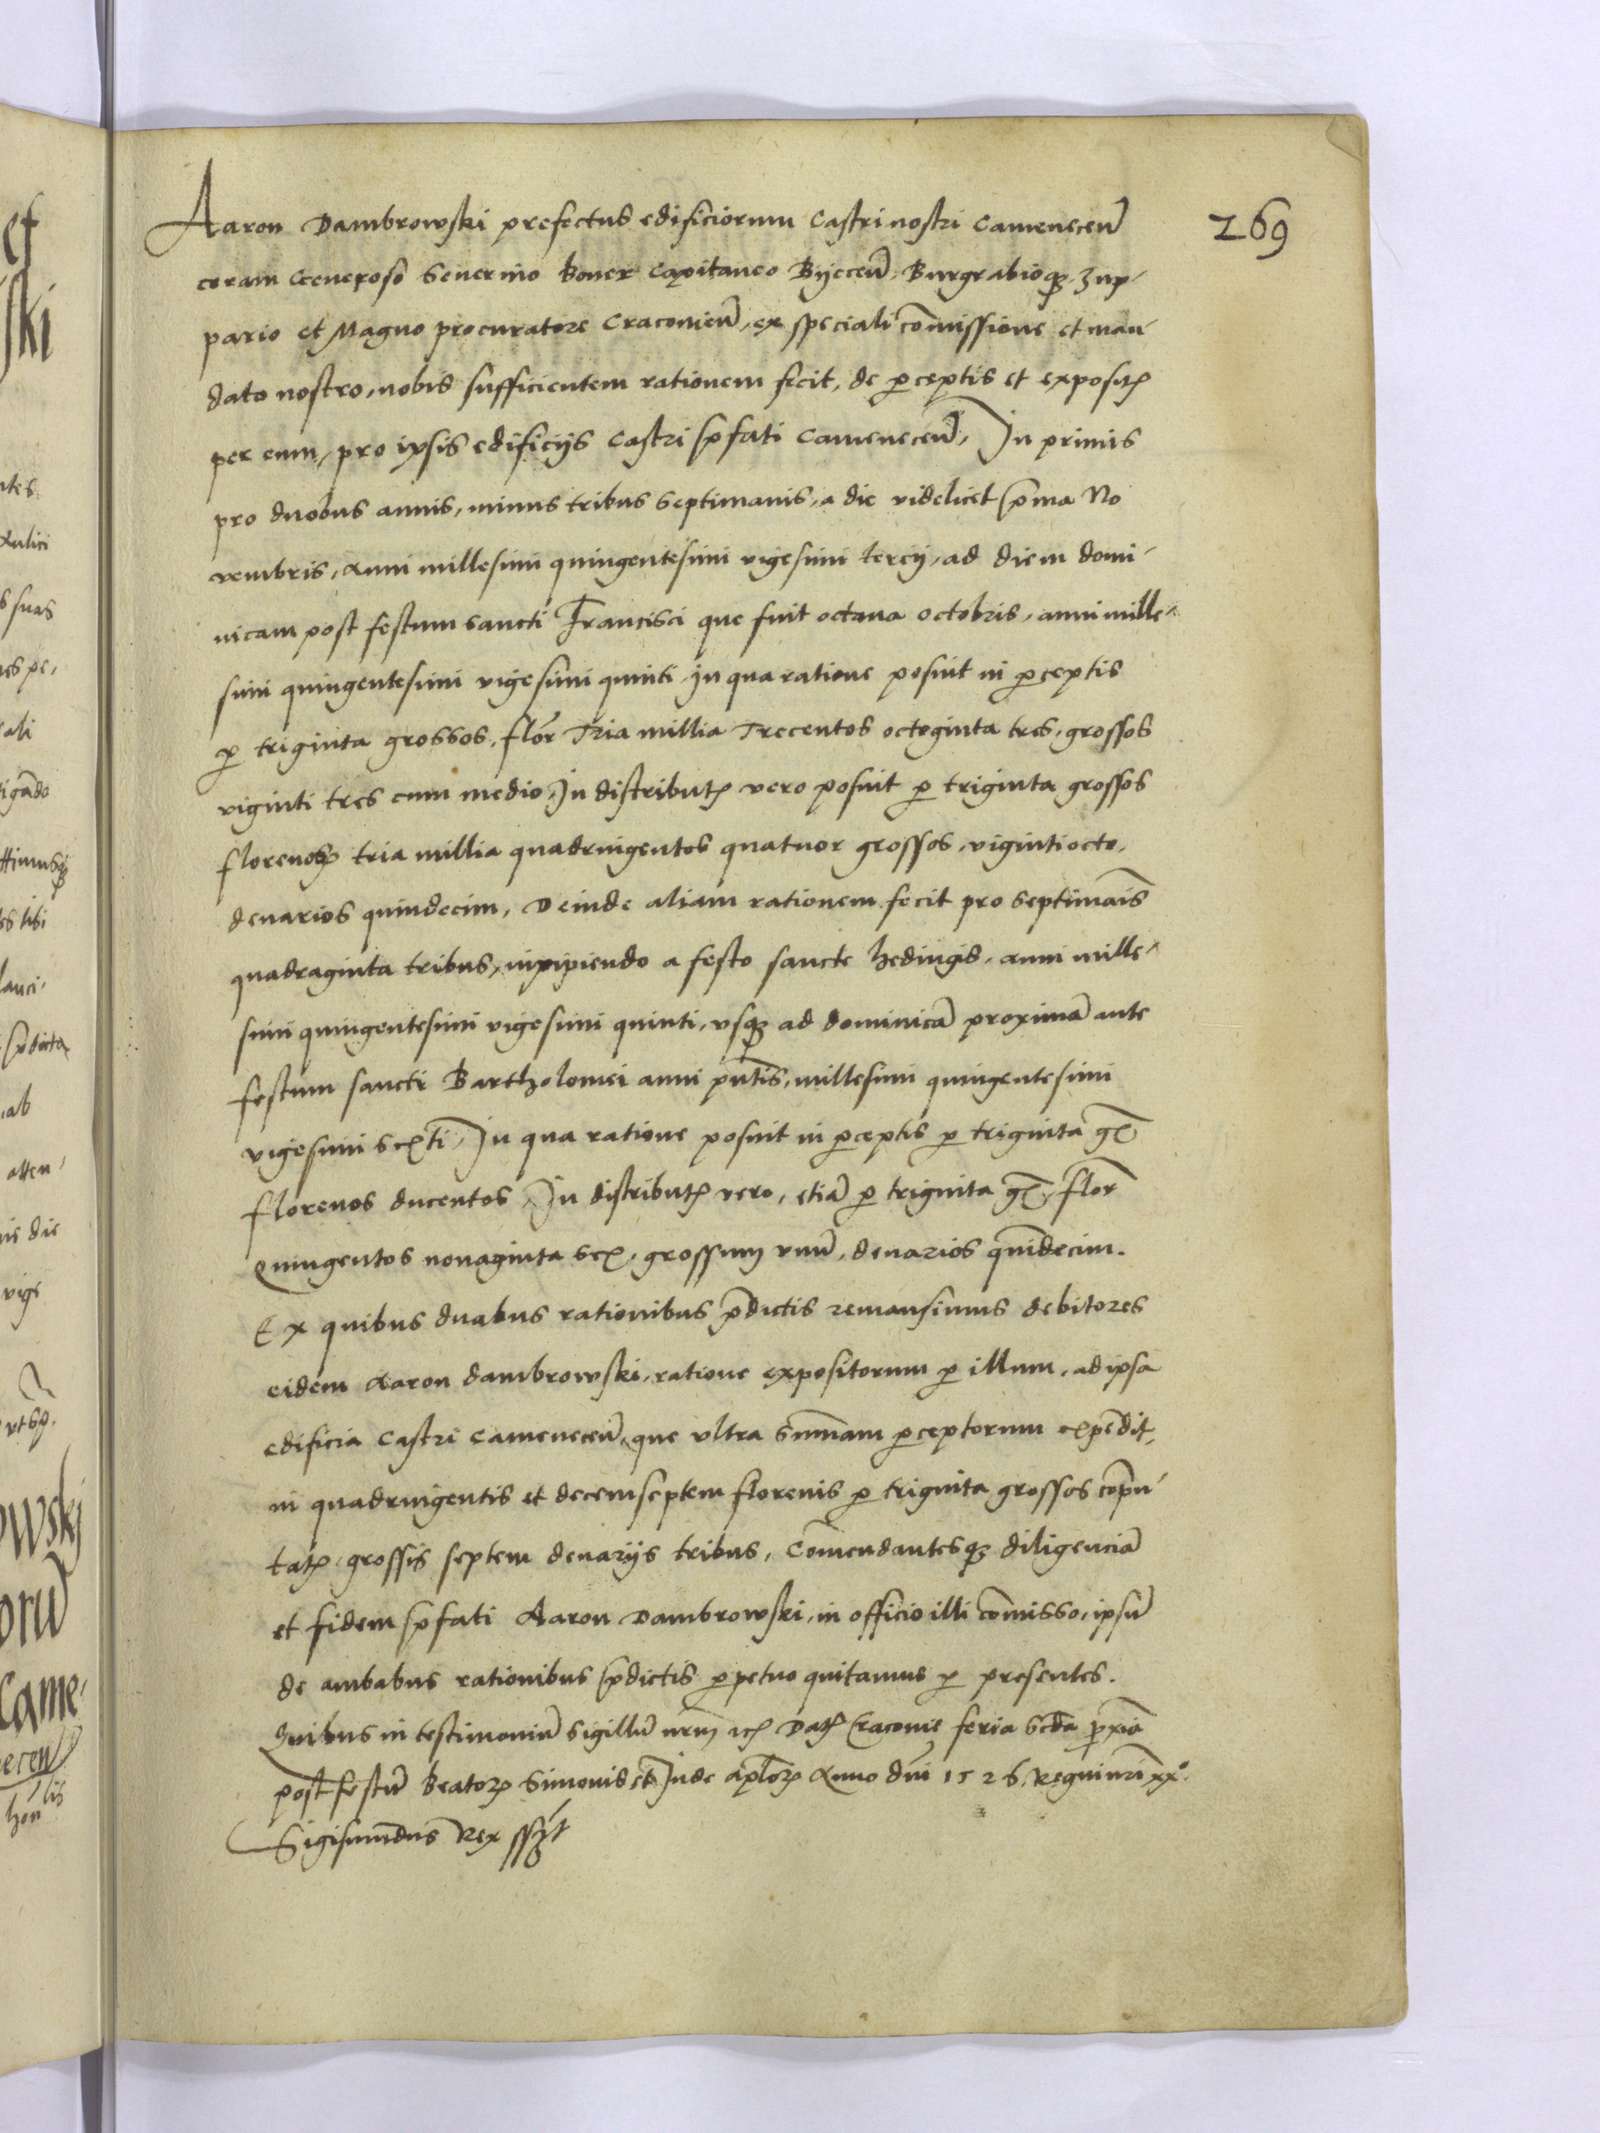 269
Aaron Dambrowski prefectus edificiorum Castri nostri Camenecen̄
coram Generoso Seuerino Boner Capitaneo Byecen̄, Burgrabioqꝫ, Zup-
pario et Magno procuratore Cracouien̄, ex speciali com̄issione et man-
dato nostro, nobis sufficientem rationem fecit, de ꝑceptis et expositꝭ
per eum, pro ipsis edificijs Castri p̄fati Camenecen̄, In primis
pro duobus annis, minus tribus septimanis, a die videlicet p̄ma No
uembris, Anni millesimi quingentesimi vigesimi tercij, ad diem domi-
nicam post festum sancti Francisci que fuit octaua octobris, anni mille-
simi quingentesimi vigesimi quinti, In qua ratione posuit in ꝑceptis
ꝑ triginta grossos, flor̄ Tria millia Trecentos octoginta tres, grossos
viginti tres cum medio, In distributꝭ vero posuit ꝑ triginta grossos
florenos tria millia quadringentos quatuor grossos, vigintiocto,
denarios quindecim, Deinde aliam rationem fecit pro septimais̄
quadraginta tribus, incipiendo a festo sancte Heduigis, anni mille-
simi quingentesimi vigesimi quinti, vsqꝫ ad dominicā proximā ante
festum sancti Bartholomei anni pn̄tis, millesimi quingentesimi
vigesimi sexti, In qua ratione posuit in ꝑceptis ꝑ triginta gꝭ
florenos ducentos, In distributꝭ vero, etiā ꝑ triginta gꝭ, flor̄
Quingentos nonaginta sex, grossum vnū, denarios quindecim.
Ex quibus duabus rationibus p̄dictis remansimus debitores
eidem Aaron dambrowski, ratione expositorum ꝑ illum, ad ipsa
edificia Castri Camenecen̄, que vltra summam ꝑceptorum expēdit,
in quadringentis et decemseptem florenis ꝑ triginta grossos cōpu-
tatꝭ, grossis septem denarijs tribus, Com̄endantesqꝫ diligenciā
et fidem p̄fati Aaron Dambrowski, in officio illi com̄isso, ipsū
de ambabus rationibus p̄dictis ꝑpetuo quitamus ꝑ presentes.
Quibus in testimoniū sigillū nr̄m etꝭ Datꝭ Cracouie feria scd̄a ꝓxīa
post festū Beatoꝝ Simonis et Iude apl̄oꝝ Anno dn̄i 1526, Regni nr̄i xxº.
Sigismūdus Rex sszt